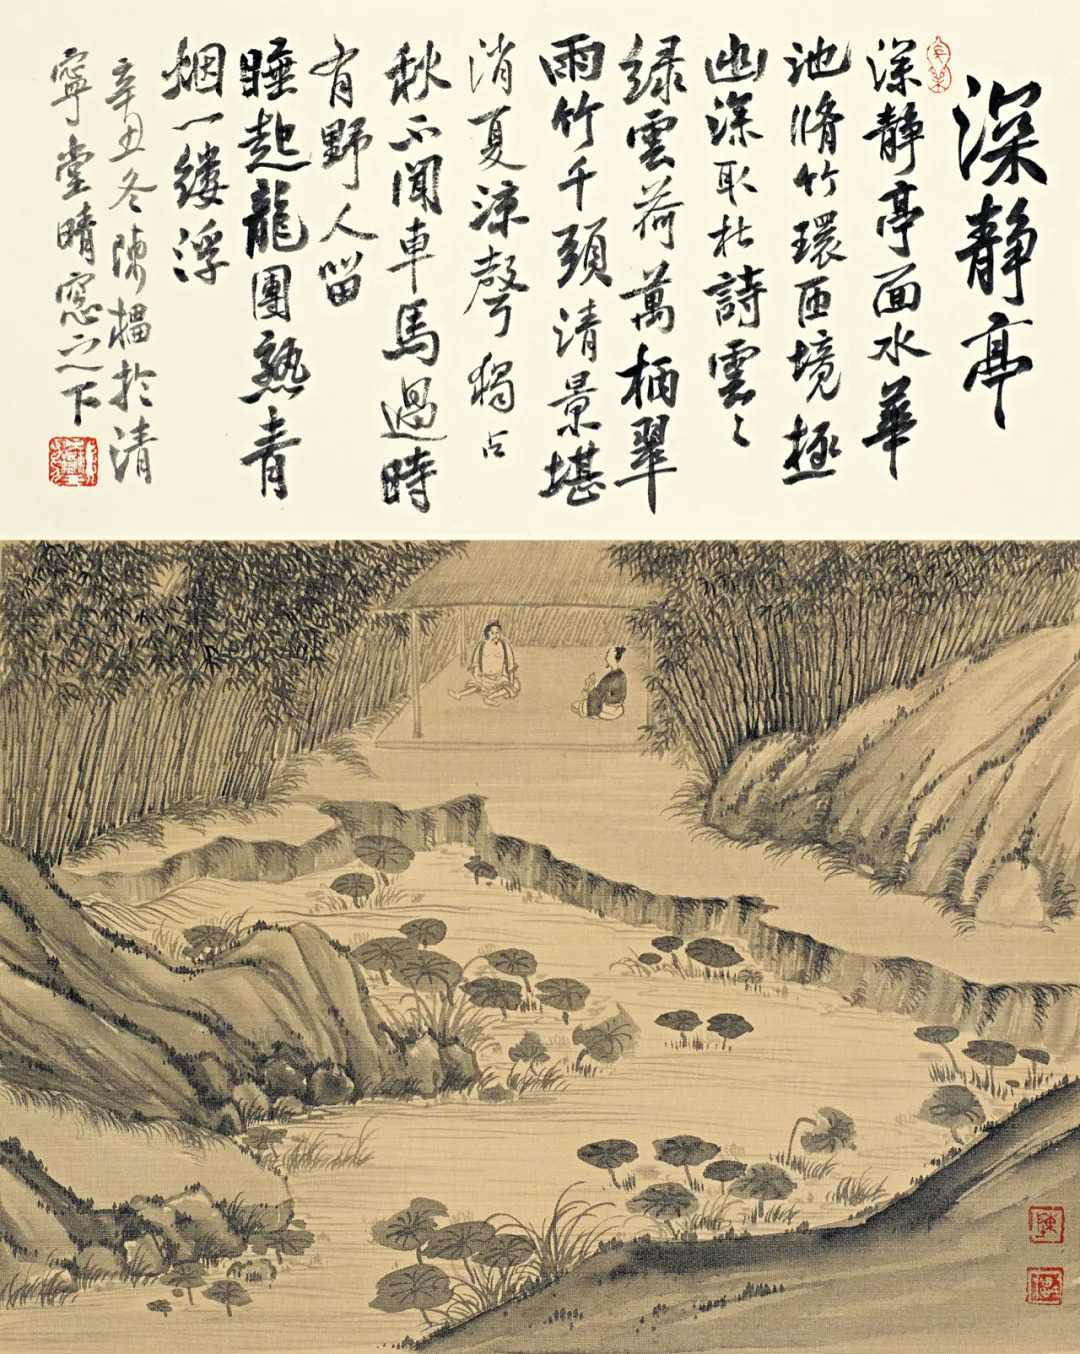 深静亭
深静亭面水華
池脩竹環匝境極
幽深取杜詩雲〻
緑雲荷萬柄翠
雨竹千頭清景堪
消夏涼聲獨占
秋不聞車馬過時
有野人留
睡起龍團熟青
烟一縷浮
辛丑冬陳於清
寧堂晴窓之下
陳